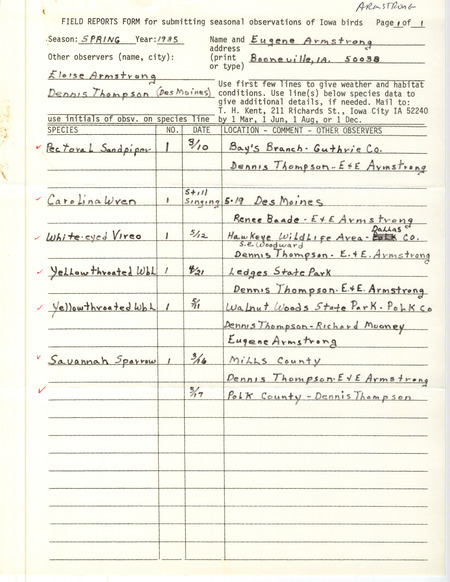 ARMSTRONG
FIELD REPORTS FORM for submitting seasonal observations of Iowa birds Page 1 of 1
Season: SPRING Year: 1985 Name and Eugene Armstrong
address
Other observers (name, city): (print Booneville, IA. 50038
or type)
Eloise Armstrong
Dennis Thompson (Des Moines) Use first few lines to give weather and habitat
conditions. Use line(s) below species data to
give additional details, if needed. Mail to:
T. H. Kent, 211 Richards St., Iowa City IA 52240
use initials of obsv. on species line by 1 Mar, 1 Jun, 1 Aug, or 1 Dec.
SPECIES NO. DATE LOCATION - COMMENT - OTHER OBSERVERS
Pectoral Sandpiper 1 3/10 Bay's Branch - Guthrie Co.
Dennis Thompson - E & E Armstrong
Still
Carolina Wren 1 Singing 5-19 Des Moines
Renee Baade - E & E Armstrong
Dallas
White-eyed Vireo 1 5/12 Hawkeye Wildlife Area - Polk Co.
S.E. Woodward
Dennis Thompson - E. & E. Armstrong
Yellowthroated Wbl 1 4/21 Ledges State Park
Dennis Thompson. E. & E. Armstrong
Yellowthroated Wbl 1 5/11 Walnut Woods State Park. Polk Co
Dennis Thompson - Richard Mooney
Eugene Armstrong
Savannah Sparrow 1 3/16 Mills County
Dennis Thompson - E & E Armstrong
3/17 Polk County - Dennis Thompson